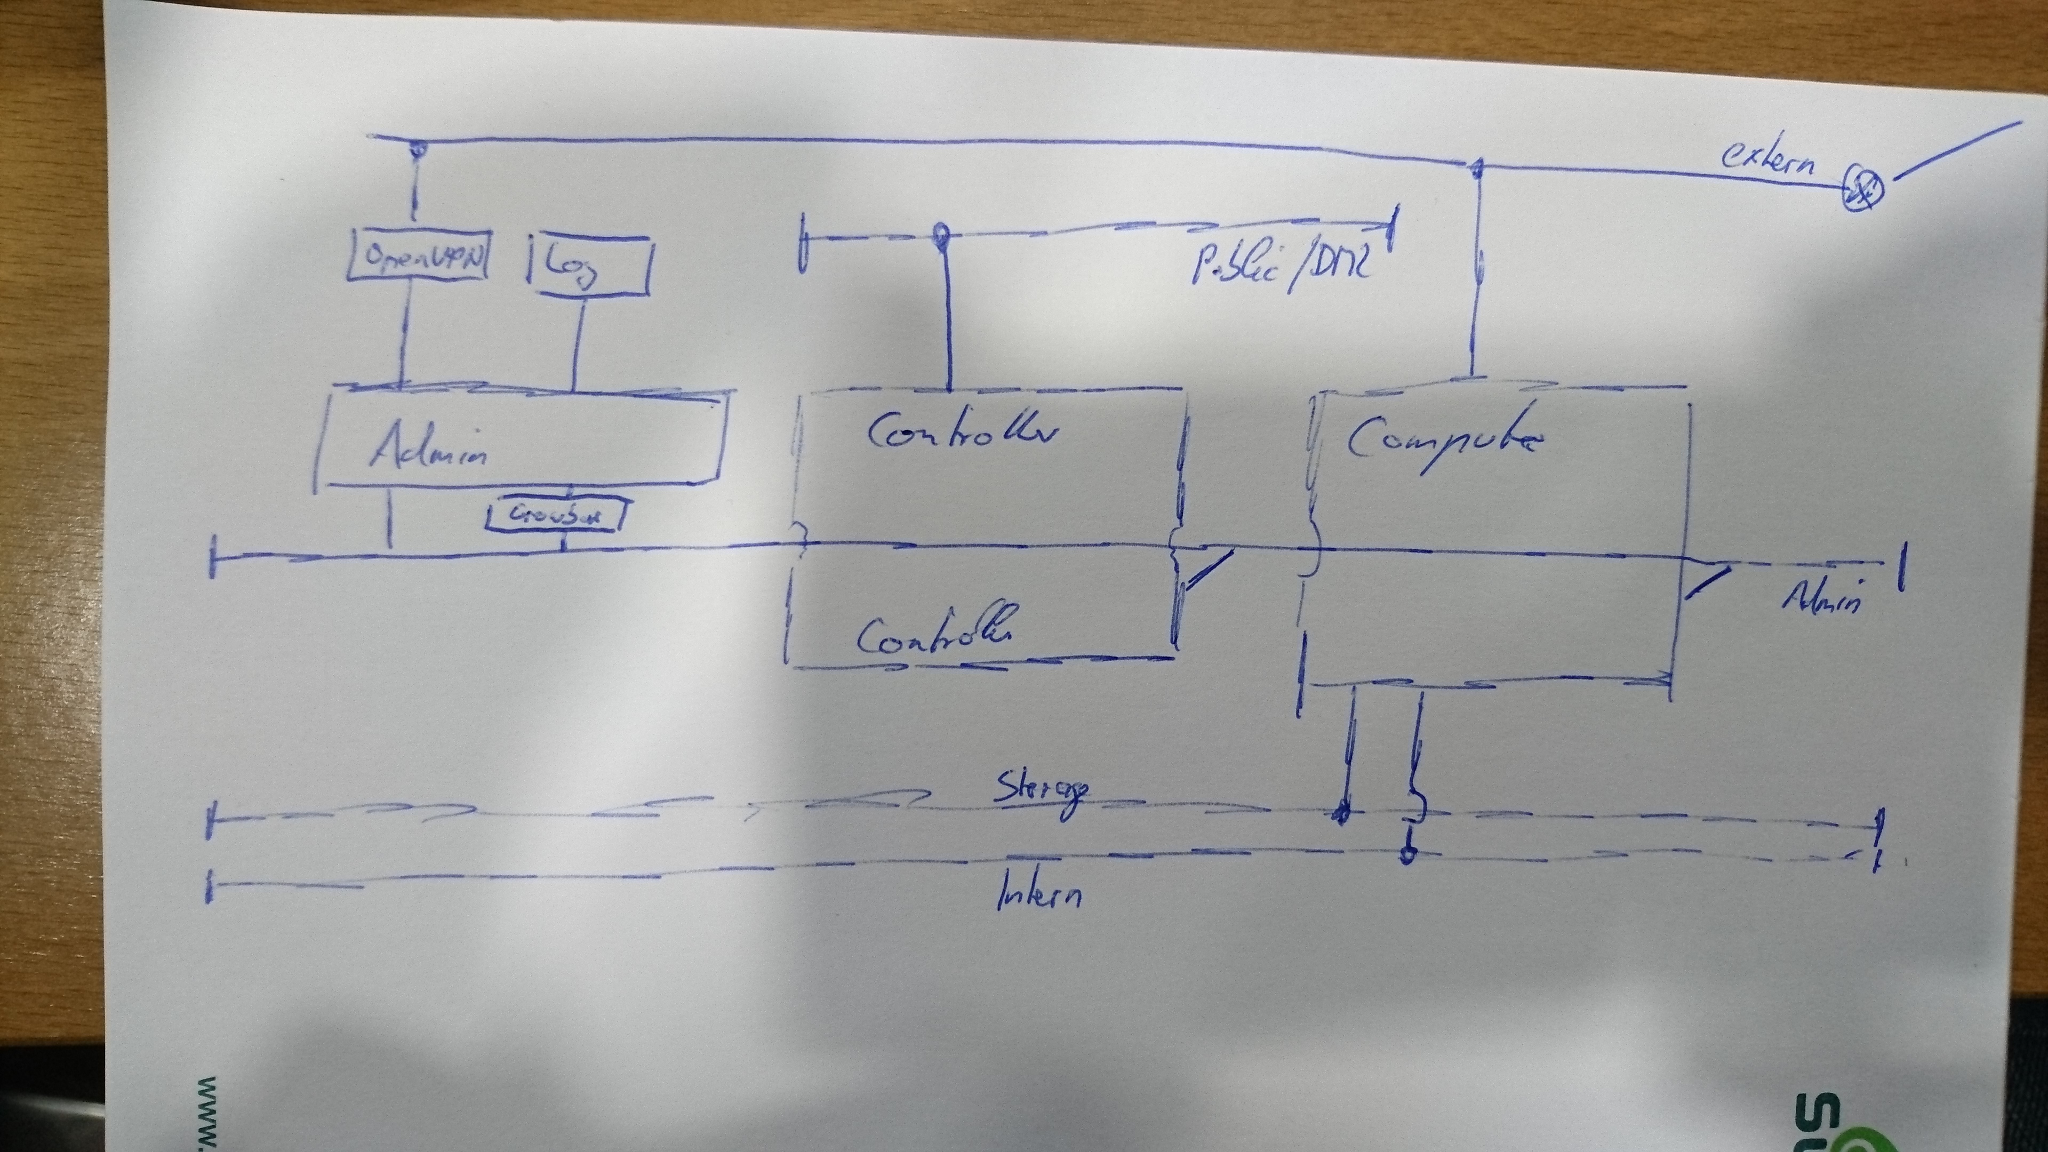 extern
OpenVPN
Log
Public/DMZ
Admin
Controller
Compute
Crowbar
Controller
Admin
Storage
Intern
www.
SU